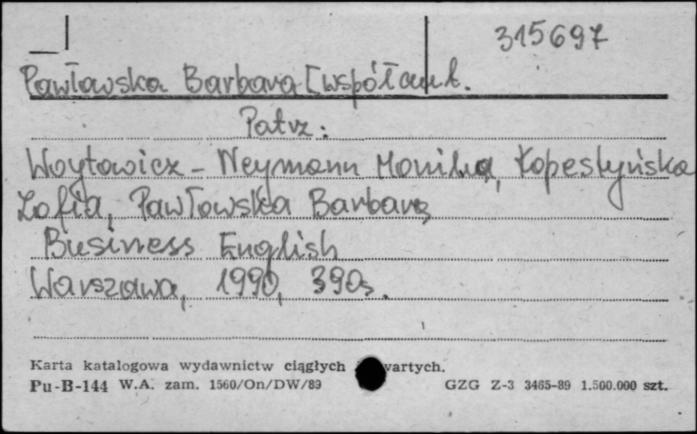 315697
Pawłowska Barbara [współaut.
Patrz:
Woytowicz-Neymann Monika, Łopestyńska
Zofia, Pawłowska Barbara
Business English
Warszawa, 1990, 390s.
Karta katalogowa wydawnictw ciągłych wartych.
Pu-B-144 W.A. zam. 1560/On/DW/89 GZG Z-3 3465-89 1.500.000 szt.